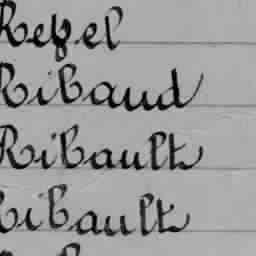 Rebel
Ribaud
Ribault
Ribault